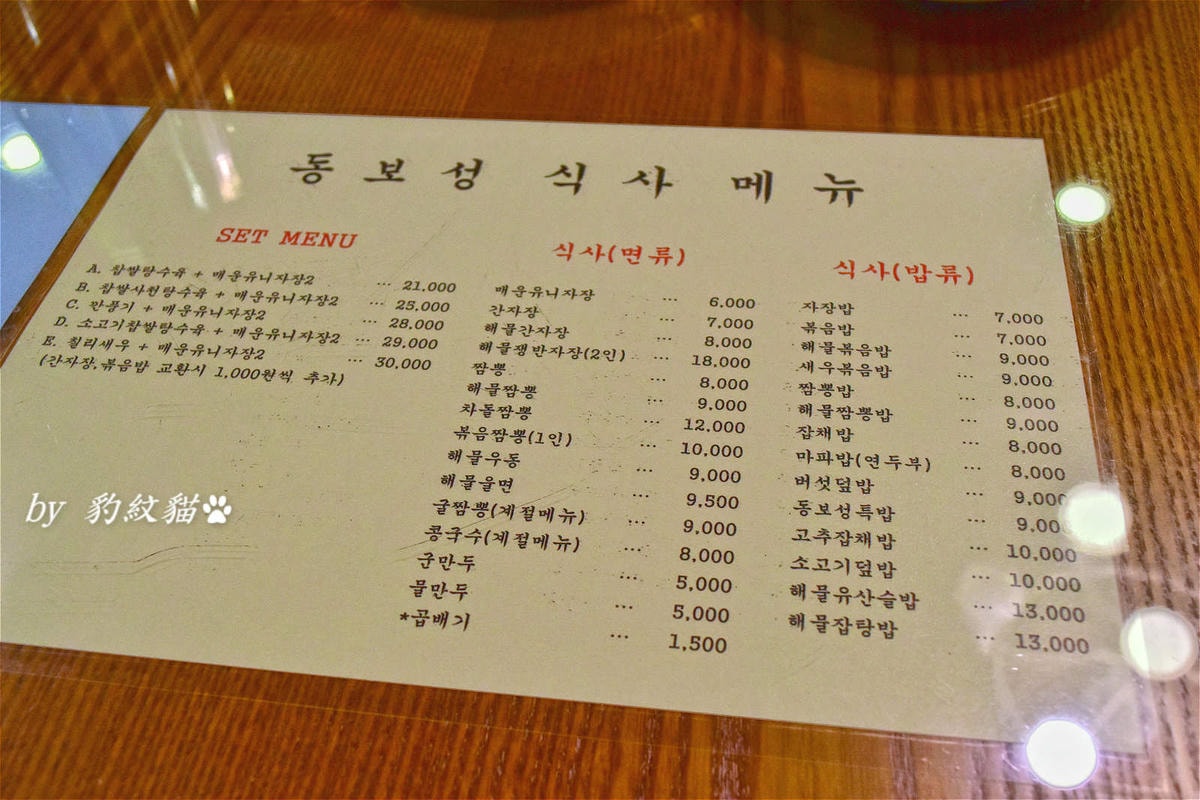 동보성 식사 메뉴
SET MENU
A. 찹쌀탕수육 + 매운유니자장2 ... 21,000
B. 찹쌀사천탕수육 + 매운유니자장2 ... 25,000
C. 깐풍기 + 매운유니자장2 ... 28,000
D. 소고기찹쌀탕수육 + 매운유니자장2 ... 29,000
E. 칠리새우 + 매운유니자장2 ... 30,000
(간자장,볶음밥 교환시 1,000원씩 추가)
식사(면류)
매운유니자장 ... 6,000
간자장 ... 7,000
해물간자장 ... 8,000
해물쟁반자장(2인) ... 18,000
짬뽕 ... 8,000
해물짬뽕 ... 9,000
차돌짬뽕 ... 12,000
볶음짬뽕(1인) ... 10,000
해물우동 ... 9,000
해물울면 ... 9,500
굴짬뽕(계절메뉴) ... 9,000
콩국수(계절메뉴) ... 8,000
군만두 ... 5,000
물만두 ... 5,000
*곱배기 ... 1,500
식사(밥류)
자장밥 ... 7,000
볶음밥 ... 7,000
해물볶음밥 ... 9,000
새우볶음밥 ... 9,000
짬뽕밥 ... 8,000
해물짬뽕밥 ... 9,000
잡채밥 ... 8,000
마파밥(연두부) ... 8,000
버섯덮밥 ... 9,000
동보성특밥 ... 9,000
고추잡채밥 ... 10,000
소고기덮밥 ... 10,000
해물유산슬밥 ... 13,000
해물잡탕밥 ... 13,000
by 豹紋貓